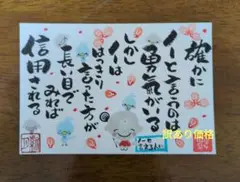 確かに
ノーと言うのは
勇気がいる
しかし
人は
はっきり
言った方が
長い目で
みれば
信用される
訳あり価格